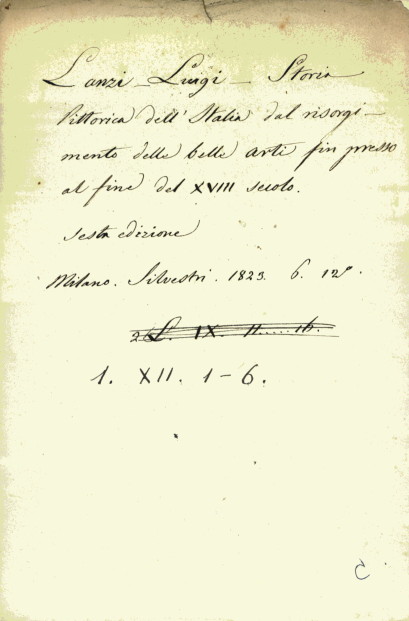 Lanzi - Luigi - Storia
Pittorica dell' Italia dal risorgi-
mento delle belle arti fin presso
al fine del XVIII secolo.
sesta edizione
Milano. Silvestri. 1823. 6. 12°.
L. IX. 11.....16.
1. XII. 1-6.
C